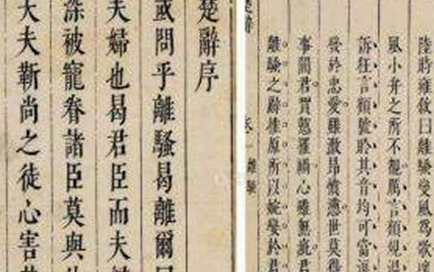 楚辭序
或問乎離騷曷離爾
夫婦也曷君臣而夫
深被寵眷諸臣莫與
大夫靳尚之徒心害
楚辭
卷一 離騷
陸時雍敘曰離騷變風為歌
風小弁之所不
訴狂言頻號聆其音均可當
發於忠愛雖激昂憤懣世莫
事闇君買怨罹讒心雖無疵
離騷之辭雄原所以婉孌於君